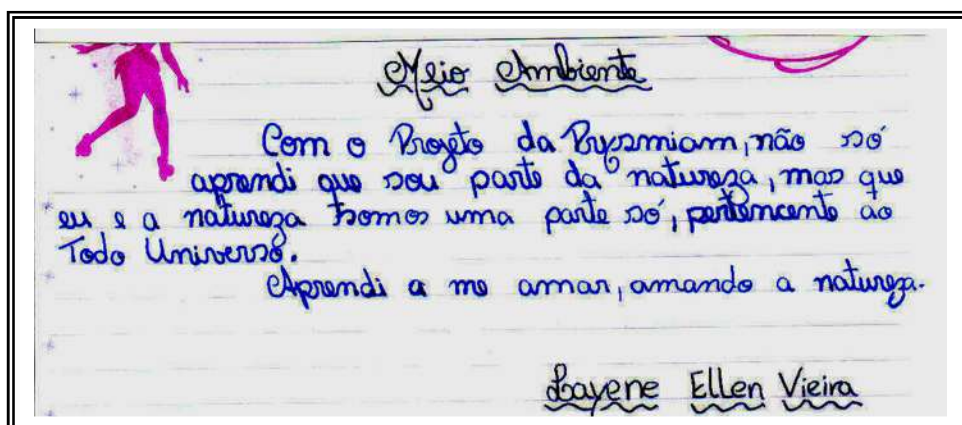 Meio Ambiente
Com o Projeto da Prysmiam, não só
aprendi que sou parte da natureza, mas que
eu e a natureza somos uma parte só, pertencente ao
Todo Universo.
Aprendi a me amar, amando a natureza.
Layene Ellen Vieira